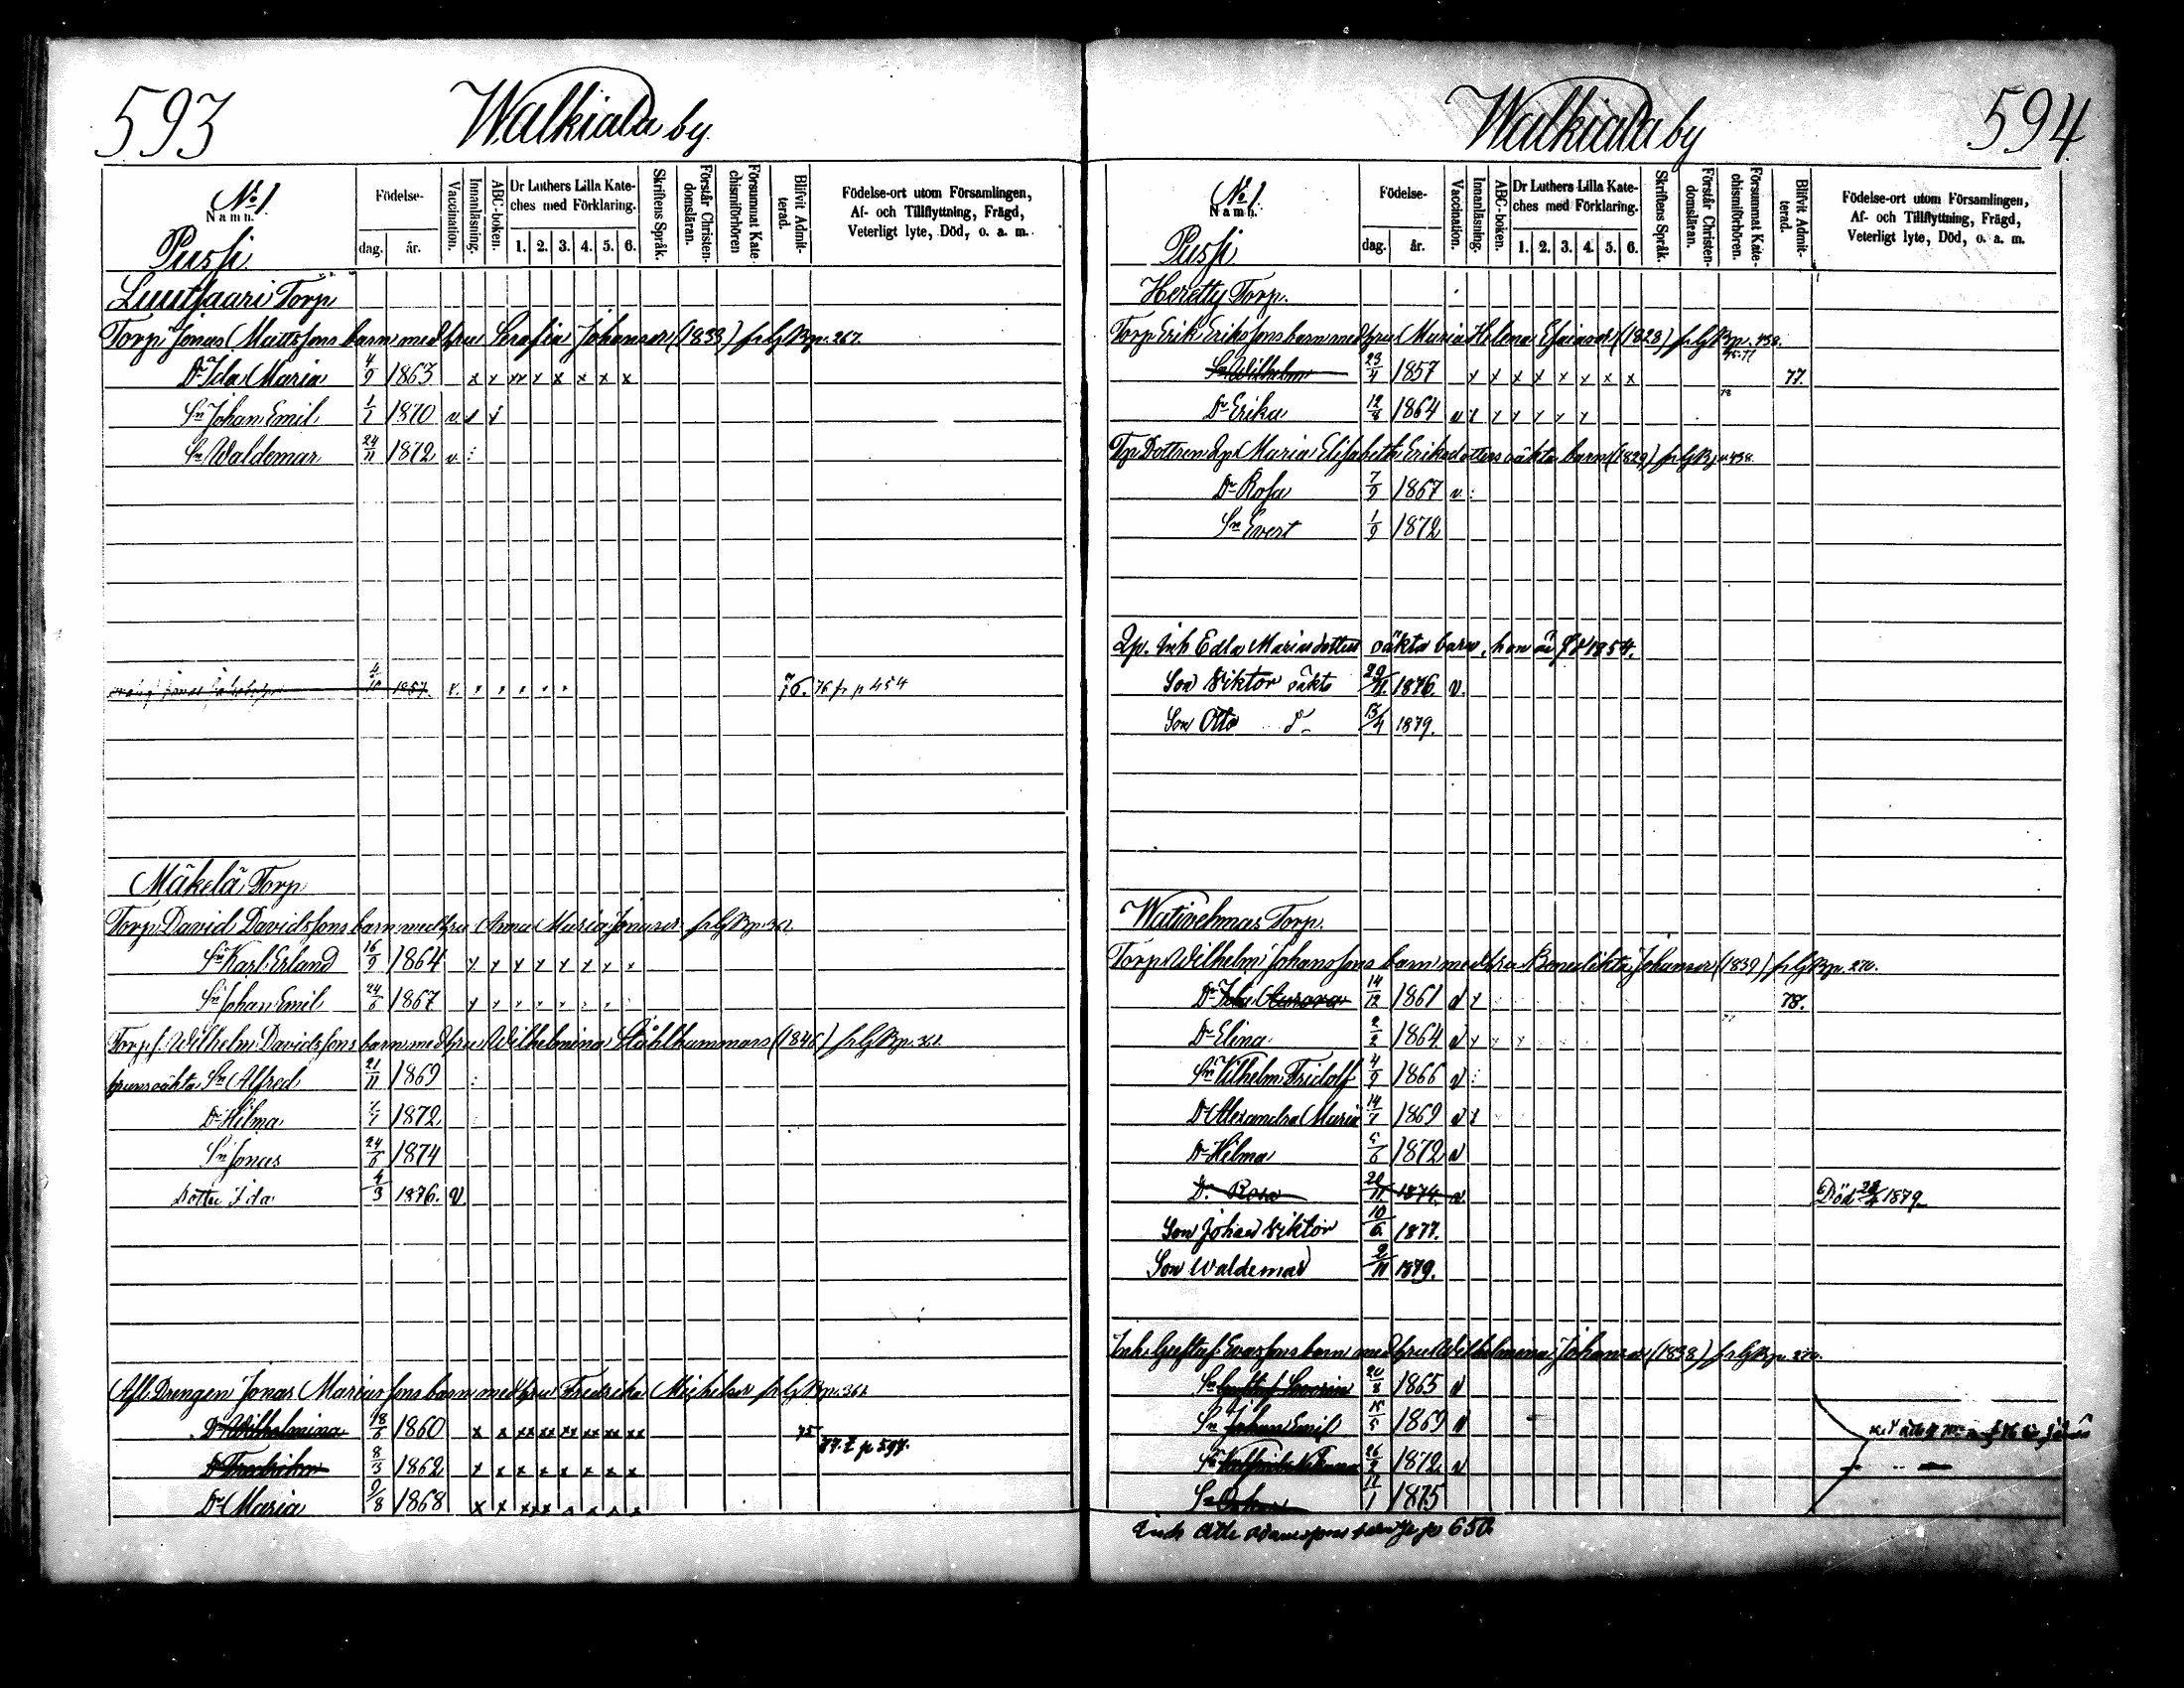 593
Walkiala by.
No 1
Namn.
Födelse-
dag. år.
Vaccination.
Innanläsning.
ABC-boken.
Dr Luthers Lilla Kate-
ches med Förklaring.
1. 2. 3. 4. 5. 6.
Skriftens Språk.
Förstår Christen-
domsläran.
Försummat Kate-
chismiförhören
Blifvit Admit-
terad.
Födelse-ort utom Församlingen,
Af- och Tillflyttning, Frägd,
Veterligt lyte, Död, o. a. m.
Pussi
Luutsaari Torp
Torp. Jonas Mattssons barn med hru Serafia Johansdr (1833) p. 267.
Dr Ida Maria 4/9 1863 x x xx x x x x x
Sn Johan Emil 1/1 1870 v.
Sn Waldemar 24/11 1872 v.
1857. v. 76. 76 fr p 454
Mäkelä Torp
Torp. David Davidssons barn med hru Anna Maria Jonasdr
Sn Karl Erland 16/9 1864 x x x x x x x x
Sn Johan Emil 24/6 1867
Torps. Wilhelm Davidssons barn med hru Wilhelmina Ståhlhammars (1846)
hruns oäkta Sn Alfred 21/11 1869
Dr Hilma 1872
Sn Jonas 24/6 1874
Dotter Ida 4/3 1876. V.
Afl. Drengen Jonas Mariæssons barn med hru Fredrika Michelsdr
Dr Wilhelmina 1860 x x xx xx xx xx xx xx 75
77. t p 597.
Dr Fredrika 8/3 1862 x x x x x x x x
Dr Maria 9/8 1868
594.
Walkiala by
No 1.
Namn.
Födelse-
dag. år.
Vaccination.
Innanläsning.
ABC-boken.
Dr Luthers Lilla Kate-
ches med Förklaring.
1. 2. 3. 4. 5. 6.
Skriftens Språk.
Förstår Christen-
domsläran.
Försummat Kate-
chismiförhören.
Blifvit Admit-
terad.
Födelse-ort utom Församlingen,
Af- och Tillflyttning, Frägd,
Veterligt lyte, Död, o. a. m.
Pussi
Heretty Torp.
Torp. Erik Erikssons barn med hru Maria Helena Esaiasdr (1828) p. 438.
Sn Wilhelm 23/4 1857 x x x x x x x x 77.
Dr Erika 12/8 1864 v
Tp Dottren Qp Maria Elisabeth Eriksdotters oäkta barn (1829) p. 438.
Dr Rosa 7/9 1867 v.
Sn Evert 1/9 1872
Qp. inh Edla Mariasdotters oäkta barn, hon är f 1854.
Son Viktor oäkta 29/11 1876. V.
Son Otto d- 13/4 1879.
Wativelmas Torp.
Torp. Wilhelm Johanssons barn med hru Benedikta Johansdr (1839) p. 270.
Dr Ida Aurora 14/12 1861 v 78.
Dr Elina 2/2 1864 v
Sn Vilhelm Fridolf 4/9 1866 v
Dr Alexandra Maria 14/7 1869 v
Dr Hilma 1872 v
Dr Rosa 20/11 1874. v Död 1879
Son Johan Viktor 10/6 1877.
Son Waldemar 2/11 1879.
Inh. Gustaf Evassons barn med hru Wilhelmina Johansdr (1838) p. 270.
Sn Gustaf 20/8 1865 v
Sn Johan Emil 15/5 1869 v
1872 v
Sn Oskar 1875
Inh Atte Adamssons barn p 650.